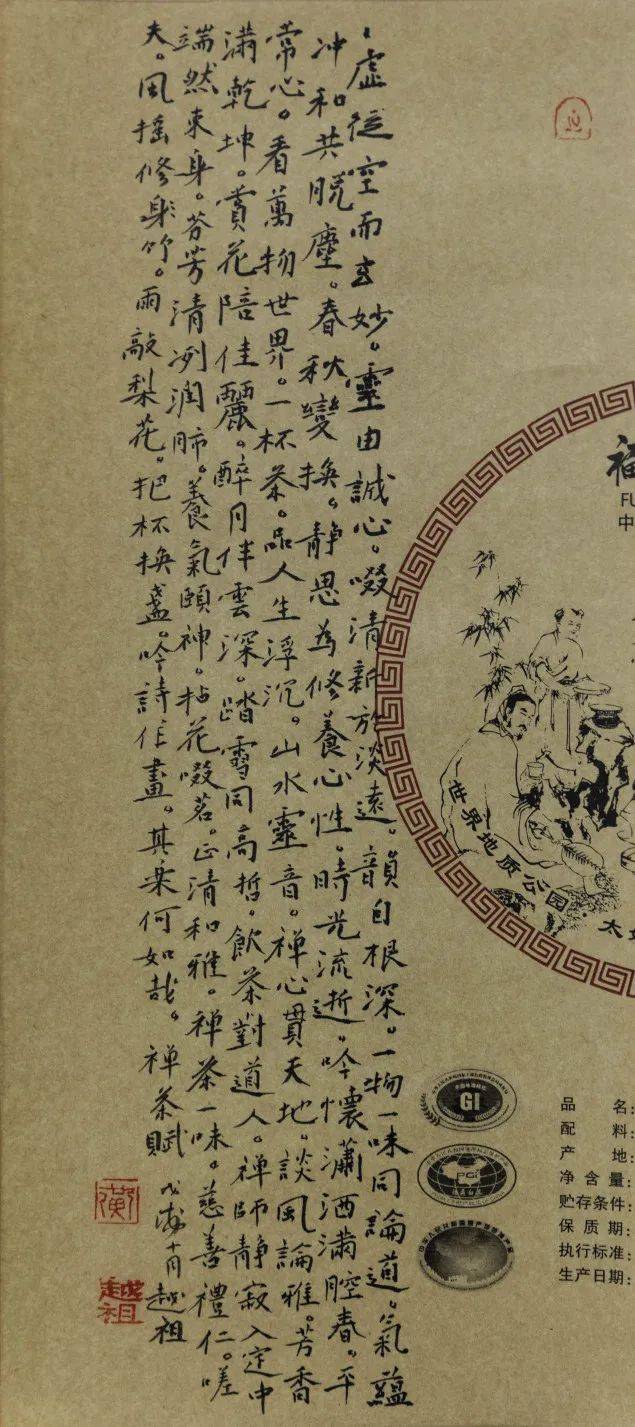 虚從空而玄妙。靈由誠心。啜清新於淡遠。韻自根深。一物一味同論道。氣蘊
冲和共脱塵。春秋變换。静思為修養心性。時光流逝。吟懷瀟洒满腔春。平
常心。看萬物世界。一杯茶。品人生浮沉。山水靈音。禅心貫天地。談風論雅。芳香
满乾坤。賞花陪佳麗。醉月伴雲深。踏雪同高哲。飲茶對道人。禅師静寂入定中
端然束身。芬芳清冽潤肺。養氣頤神。拈花啜茗。正清和雅。禅茶一味。慈善禮仁。嗟
夫。風摇修身竹。雨敲梨花。把杯换盏。吟詩作畫。其樂何如哉。禅茶賦
十月越祖
越祖
福
FU
中
世界地质公园·太
GI
PGI
品名:
配料:
产地:
净含量:
贮存条件:
保质期:
执行标准:
生产日期: